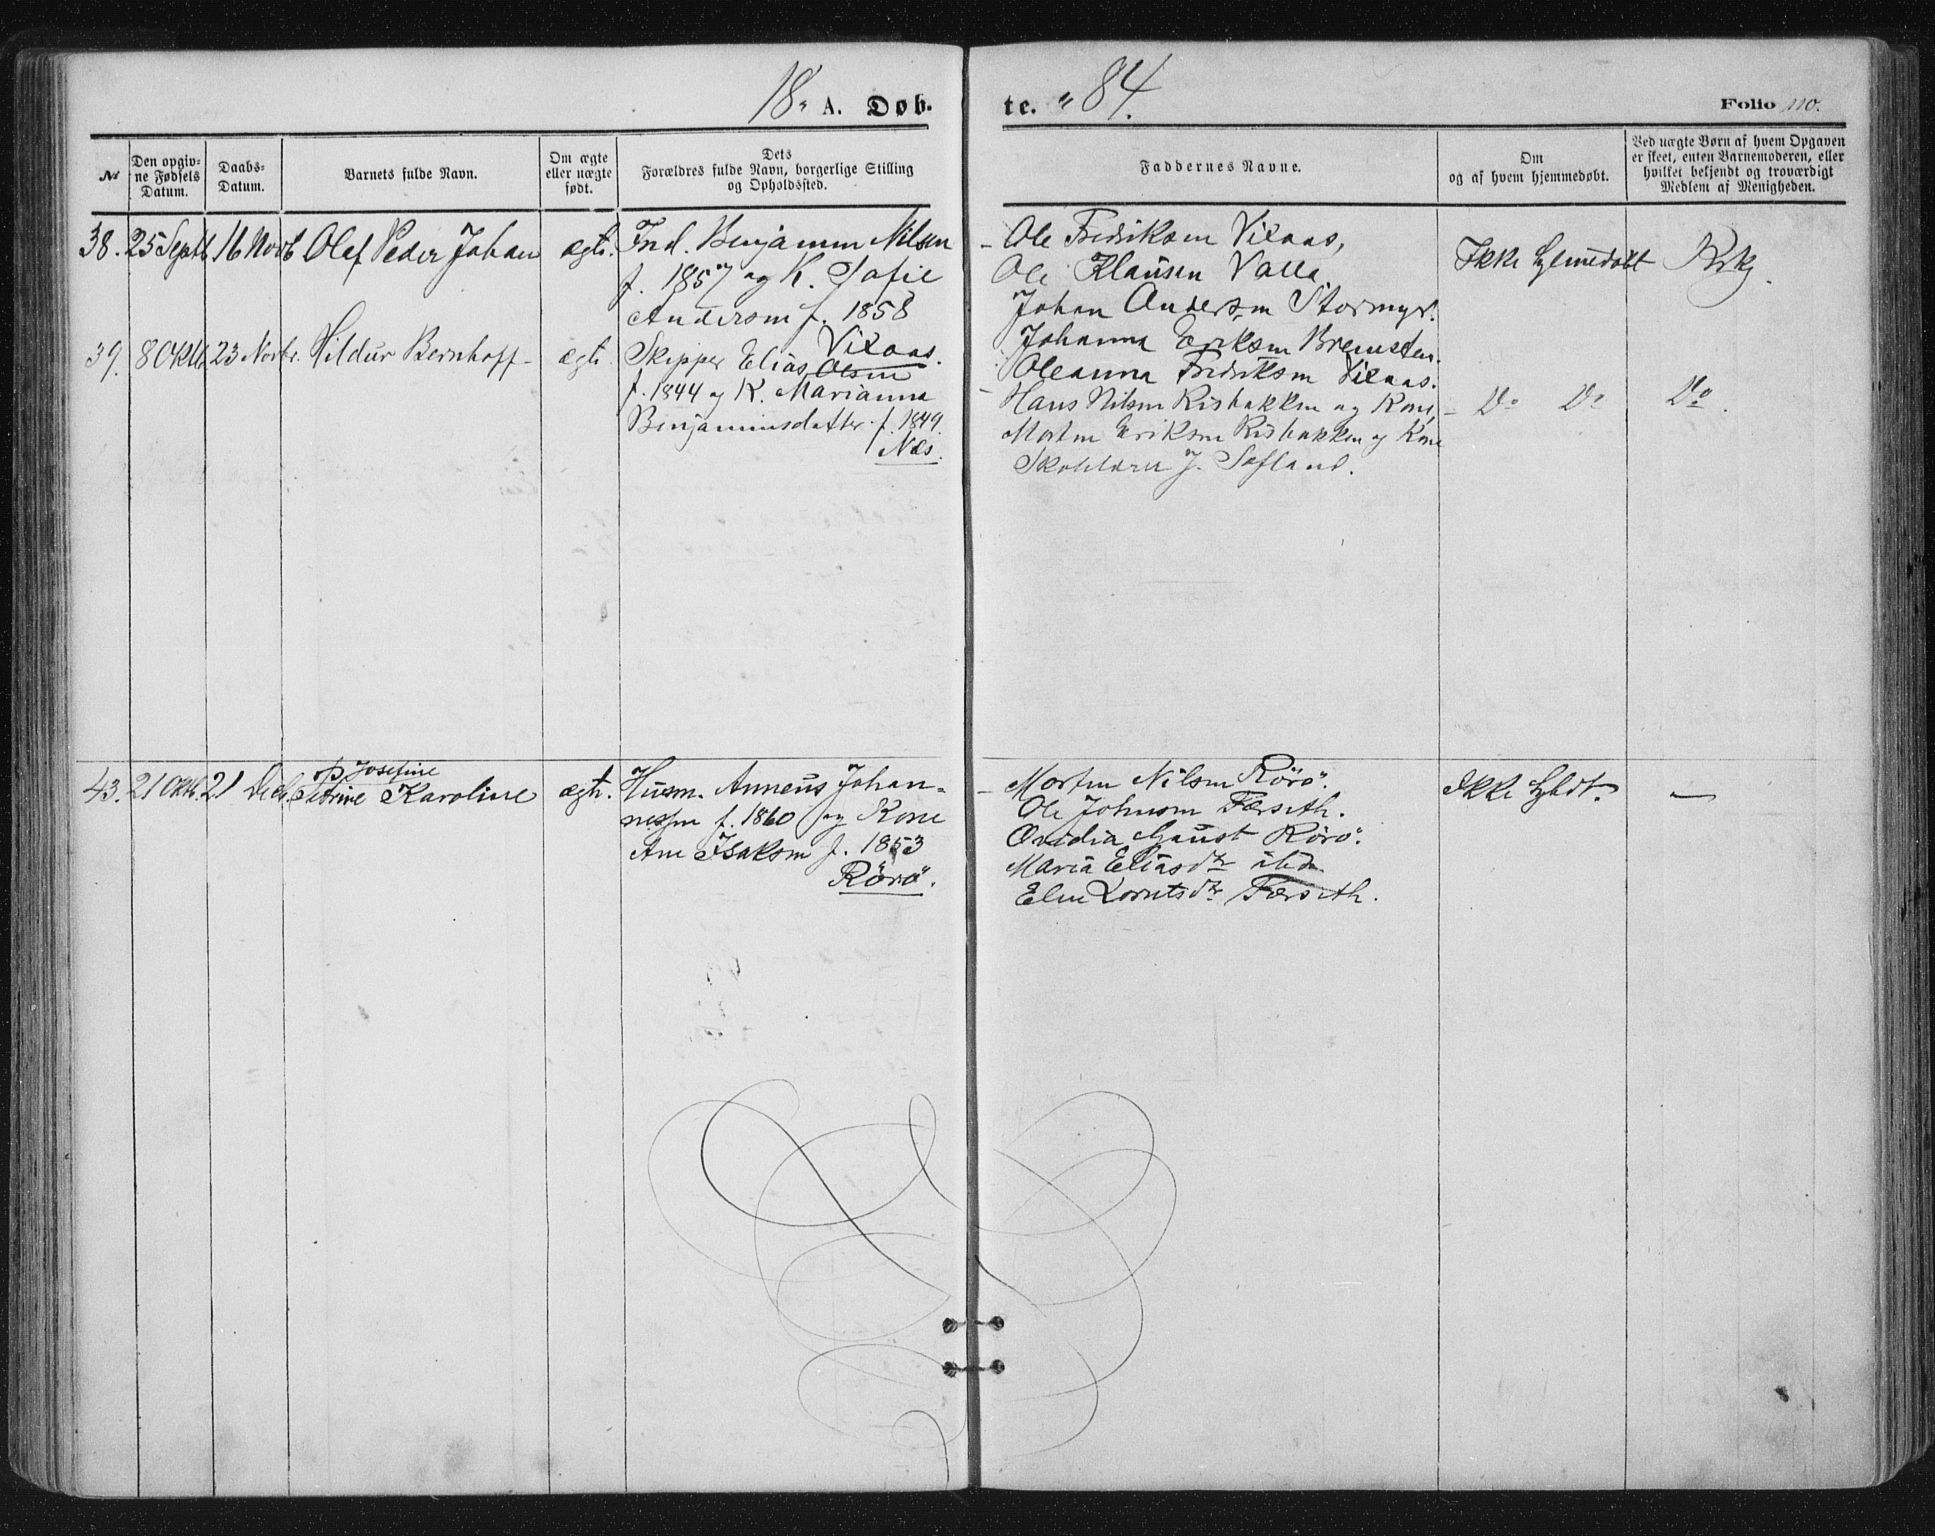 18 " A. Døb-
te. " 84.
Folio 110.
No
Den opgiv-
ne Fødsels
Datum.
Daabs-
Datum.
Barnets fulde Navn.
Om ægte
eller uægte
født.
Dets
Forældres fulde Navn, borgerlige Stilling
og Opholdssted.
Faddernes Navne.
Om
og af hvem hjemmedøbt.
Ved uægte Børn af hvem Opgaven
er skeet, enten Barnemoderen, eller
hvilket bekjendt og troværdigt
Medlem af Menigheden.
38. 25 Septb 16 Novb Olaf Peder Johan ægte.
Ind. Benjamin Nilsen
f. 1857 og K. Sofie
Andersen f. 1858
Vixaas.
Ole Fredriksen Vixaas,
Ole Klausen Valla
Johan Andersen Stormyr.
Johanna Eriksen Bremsten.
Oleanna Fredriksen Vixaas.
Ikke Hjemmedøbt
39. 8 Oktb. 23 Novbr. Hildur Bernhoff - ægte
Skipper Elias Olsen
f. 1844 og K. Marianna
Benjaminsdatter f. 1849.
Næs.
Hans Nilsen Risbakken og Kone,
Morten Eriksen Risbakken og Kone
Skolelærer J. Sefland.
Do Do
Do.
43. 21 Oktb. 21 Decb. Petrine Karoline ægte.
Josefine
Husm. Anneus Johan-
nessen f. 1860 og Kone
Ane Isaksen f. 1853
Rörö.
Morten Nilsen Rörö.
Ole Johnsen Færseth.
Ovidia Gaust Rörö.
Maria Eliasdr ibd
Elen Lorntsdr Færseth.
Ikke Hjdt. —